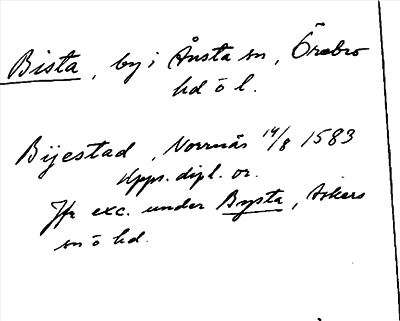 Bista, by i Ånsta sn, Örebro
hd o l.
Bijestad, Norrnäs 14/8 1583
Upps. dipl. or.
Jfr exc. under Bysta, Askers
sn o hd.